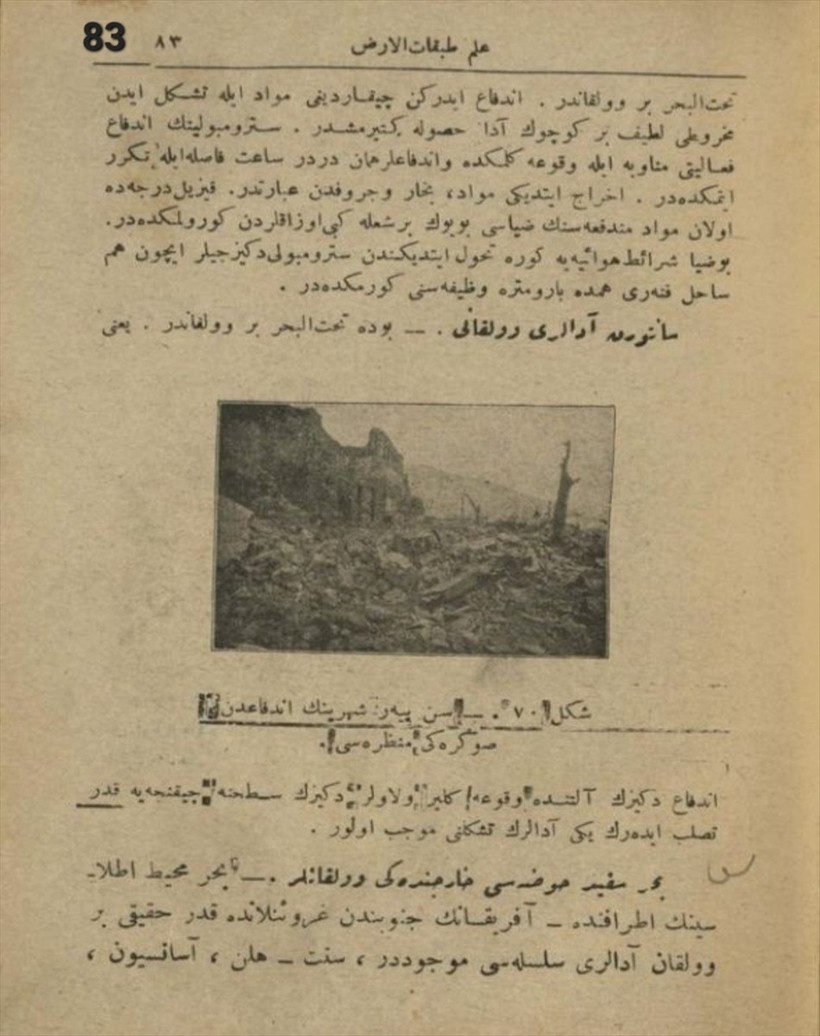 83
٨٣ علم طبقات‌الارض
تحت‌البحر بر وولقاندر . اندفاع ایدرکن چیقاردیغی مواد ایله تشکل ایدن
مخروطی لطیف بر کوچوك آدا حصوله کتیرمشدر . سترومبولینك اندفاع
فعالیتی مناوبه ایله وقوعه کلمکده واندفاعلر همان دردر ساعت فاصله‌ایله تکرر
ایتمکده‌در . اخراج ایتدیکی مواد، بخار وجروفدن عبارتدر. قیزیل‌درجه‌ده
اولان مواد مندفعه‌سنك ضیاسی بویوك برشعله کبی‌اوزاقلردن کورولمکده‌در.
بوضیا شرائط‌هوائیه‌یه کوره تحول ایتدیکندن سترومبولی‌دکیزجیلر ایچون هم
ساحل فنه‌ری همده بارومتره وظیفه‌سنی کورمکده‌در .
سانتورن آدالری وولقانی . — بوده تحت‌البحر بر وولقاندر . یعنی
شکل ٧٠ . — سن پیه‌ر شهرینك اندفاعدن
صوکره‌کی منظره‌سی .
اندفاع دکیزك آلتنده وقوعه کلیر ولاولر دکیزك سطحنه چیقنجه‌یه قدر
تصلب ایده‌رك یکی آدالرك تشکلنی موجب اولور .
بحر سفید حوضه‌سی خارجنده‌کی وولقانلر . — بحر محیط اطلا-
سینك اطرافنده — آفریقانك جنوبندن غروئنلانده قدر حقیقی بر
وولقان آدالری سلسله‌سی موجوددر ، سنت — هلن ، آسانسیون ،